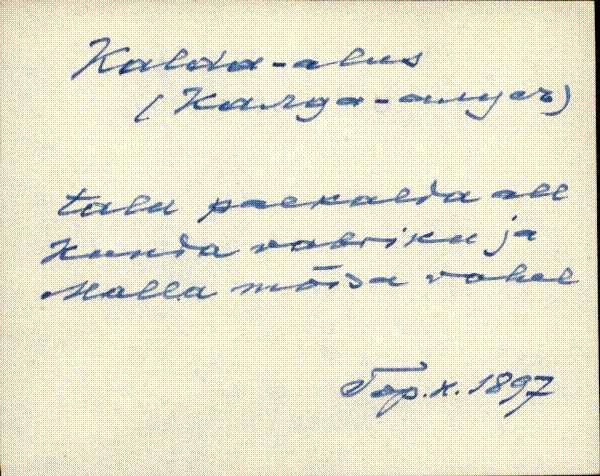 Kalda-alus
(Калда-алус)
talu paekalda all
Kunda vabriku ja
Malla mõisa vahel
Тор.х. 1897